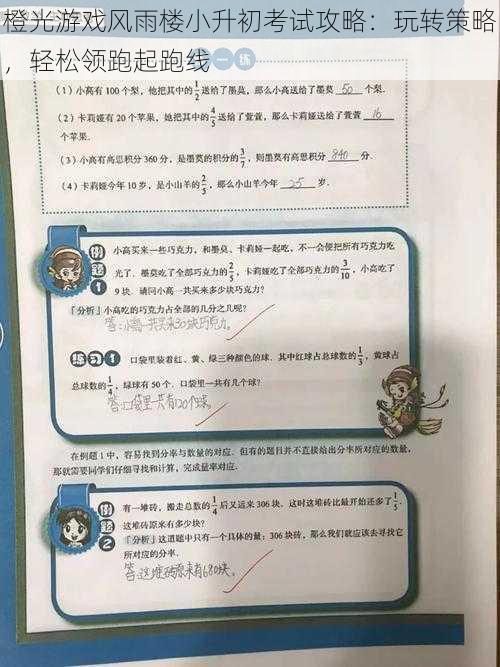 橙光游戏风雨楼小升初考试攻略：玩转策略
，轻松领跑起跑线
一练
(1) 小高有 100 个梨，他把其中的 1/2 送给了墨莫，那么小高送给了墨莫 50 个梨.
(2) 卡莉娅有 20 个苹果，她把其中的 4/5 送给了萱萱，那么卡莉娅送给了萱萱 16
个苹果.
(3) 小高有高思积分 360 分，是墨莫的积分的 3/7，则墨莫有高思积分 840 分.
(4) 卡莉娅今年 10 岁，是小山羊的 2/5，那么小山羊今年 25 岁.
例题1
小高买来一些巧克力，和墨莫、卡莉娅一起吃，不一会便把所有巧克力吃
光了. 墨莫吃了全部巧克力的 2/5，卡莉娅吃了全部巧克力的 3/10，小高吃了
9 块. 请问小高一共买来多少块巧克力？
「分析」小高吃的巧克力占全部的几分之几呢？
答:小高一共买来30块巧克力。
练习1
口袋里装着红、黄、绿三种颜色的球. 其中红球占总球数的 1/3，黄球占
总球数的 1/4，绿球有 50 个. 口袋里一共有几个球？
答:口袋里一共有120个球。
在例题 1 中，容易找到分率与数量的对应. 但有的题目并不直接给出分率所对应的数量，
那就需要同学们仔细寻找和计算，完成量率对应.
例题2
有一堆砖，搬走总数的 1/4 后又运来 306 块. 这时这堆砖比最开始还多了 1/5.
这堆砖原来有多少块？
「分析」这道题中只有一个具体的量：306 块砖，那么我们就应该去寻找它
所对应的分率.
答:这堆砖原来有680块。